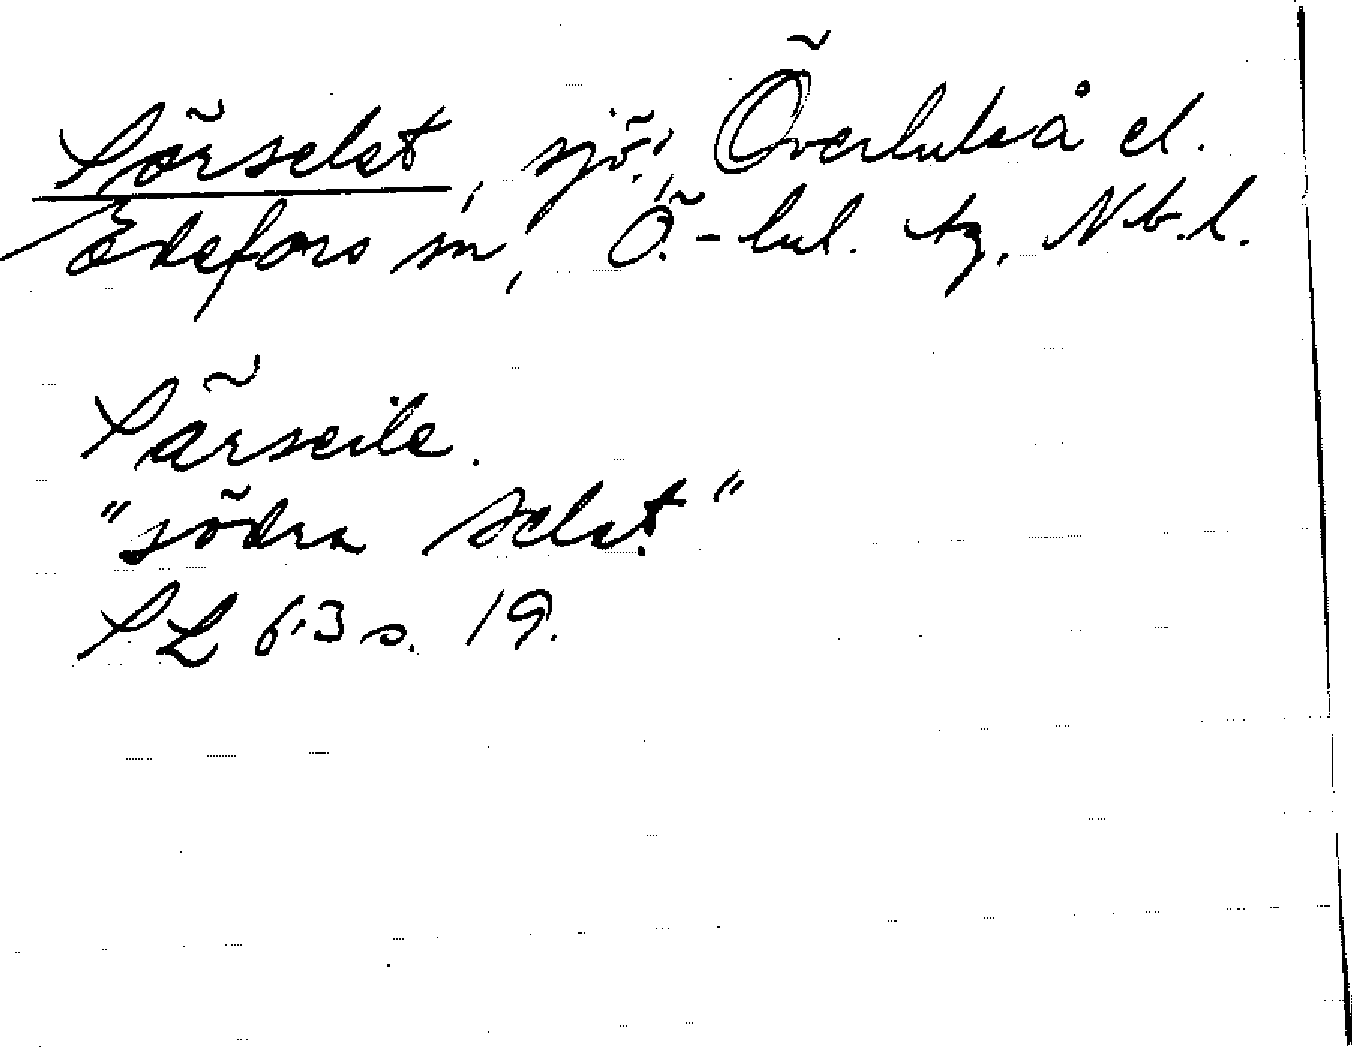 Sörselet, sjö, Överluleå el.
Edefors sn, Ö.-lul. tg, Nb.l.
Särseile.
"södra selet"
SL 6:3 s. 19.